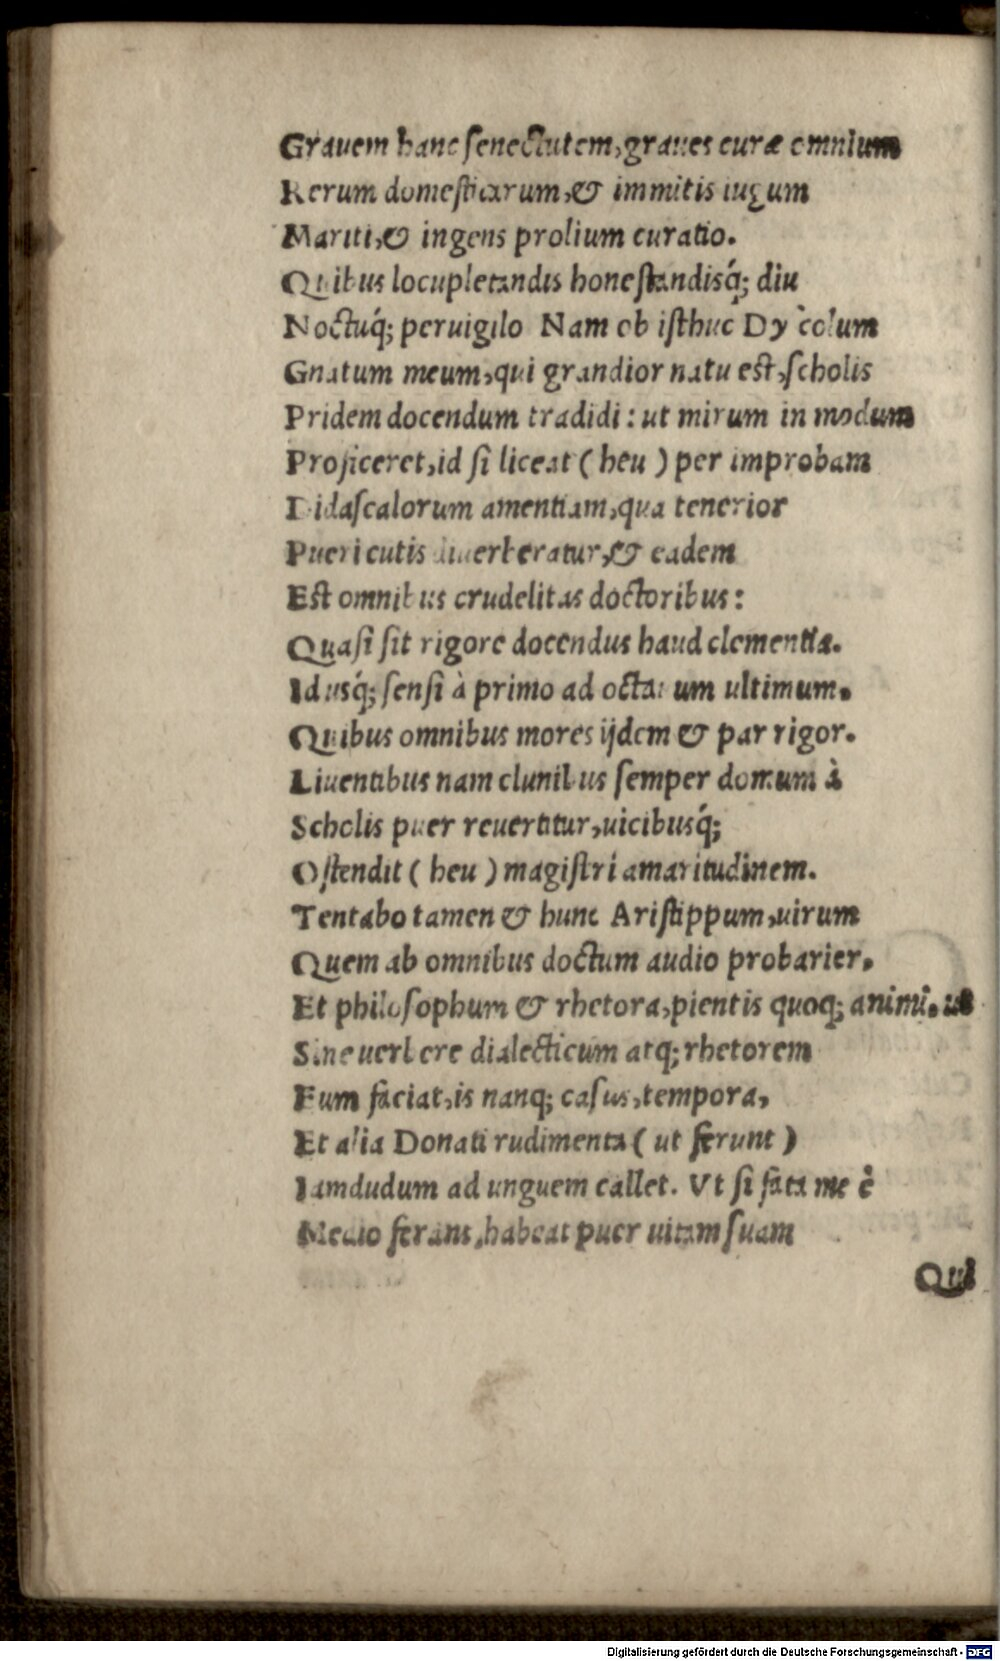 Grauem hanc senectutem, graues curæ omnium
Rerum domesticarum, & immitis iugum
Mariti, & ingens prolium curatio.
Quibus locupletandis honestandisq́; diu
Noctuq́; peruigilo Nam ob isthuc Dyscolum
Gnatum meum, qui grandior natu est, scholis
Pridem docendum tradidi: ut mirum in modum
Proficeret, id si liceat ( heu ) per improbam
Didascalorum amentiam, qua tenerior
Pueri cutis diuerberatur, & eadem
Est omnibus crudelitas doctoribus:
Quasi sit rigore docendus haud clementia.
Idusq́; sensi à primo ad octauum ultimum.
Quibus omnibus mores ijdem & par rigor.
Liuentibus nam clunibus semper domum à
Scholis puer reuertitur, uicibusq́;
Ostendit ( heu ) magistri amaritudinem.
Tentabo tamen & hunc Aristippum, uirum
Quem ab omnibus doctum audio probarier,
Et philosophum & rhetora, pientis quoq; animi. ut
Sine uerbere dialecticum atq; rhetorem
Eum faciat, is nanq; casus, tempora,
Et alia Donati rudimenta ( ut ferunt )
Iamdudum ad unguem callet. Vt si fata me è
Medio ferant, habeat puer uitam suam
Qui
Digitalisierung gefördert durch die Deutsche Forschungsgemeinschaft - DFG